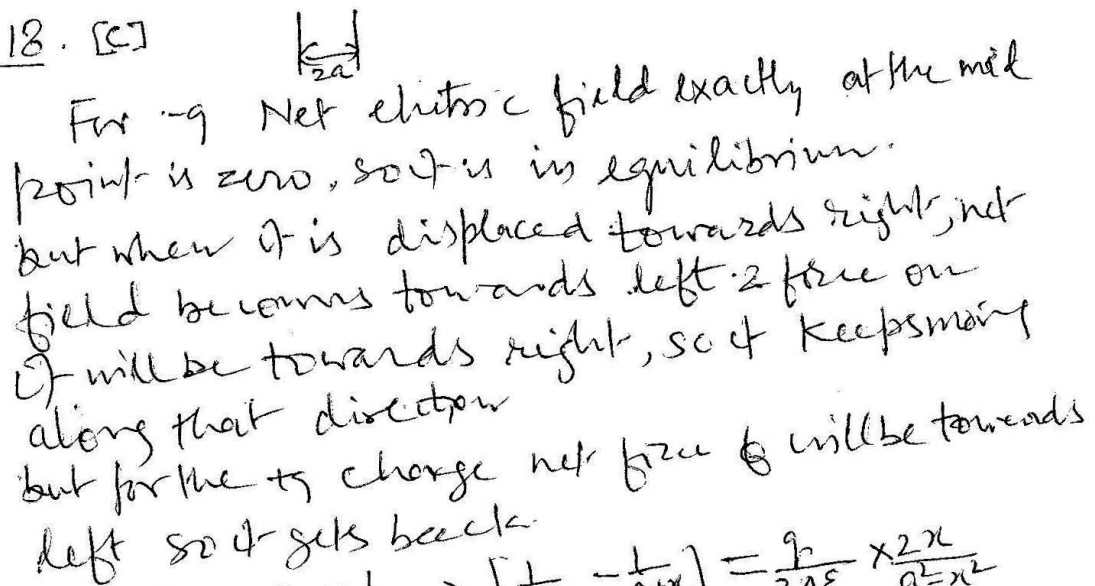 18. [C]
2a
For -q Net electric field exactly at the mid
point is zero, so it is in equilibrium.
but when it is displaced towards right, net
field becomes towards left & force on
it will be towards right, so it keeps moving
along that direction
but for the +q charge net force will be towards
left so it gets back.
= × 2x
a²-x²